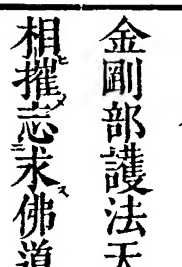 金剛部護法天
相摧志求佛道